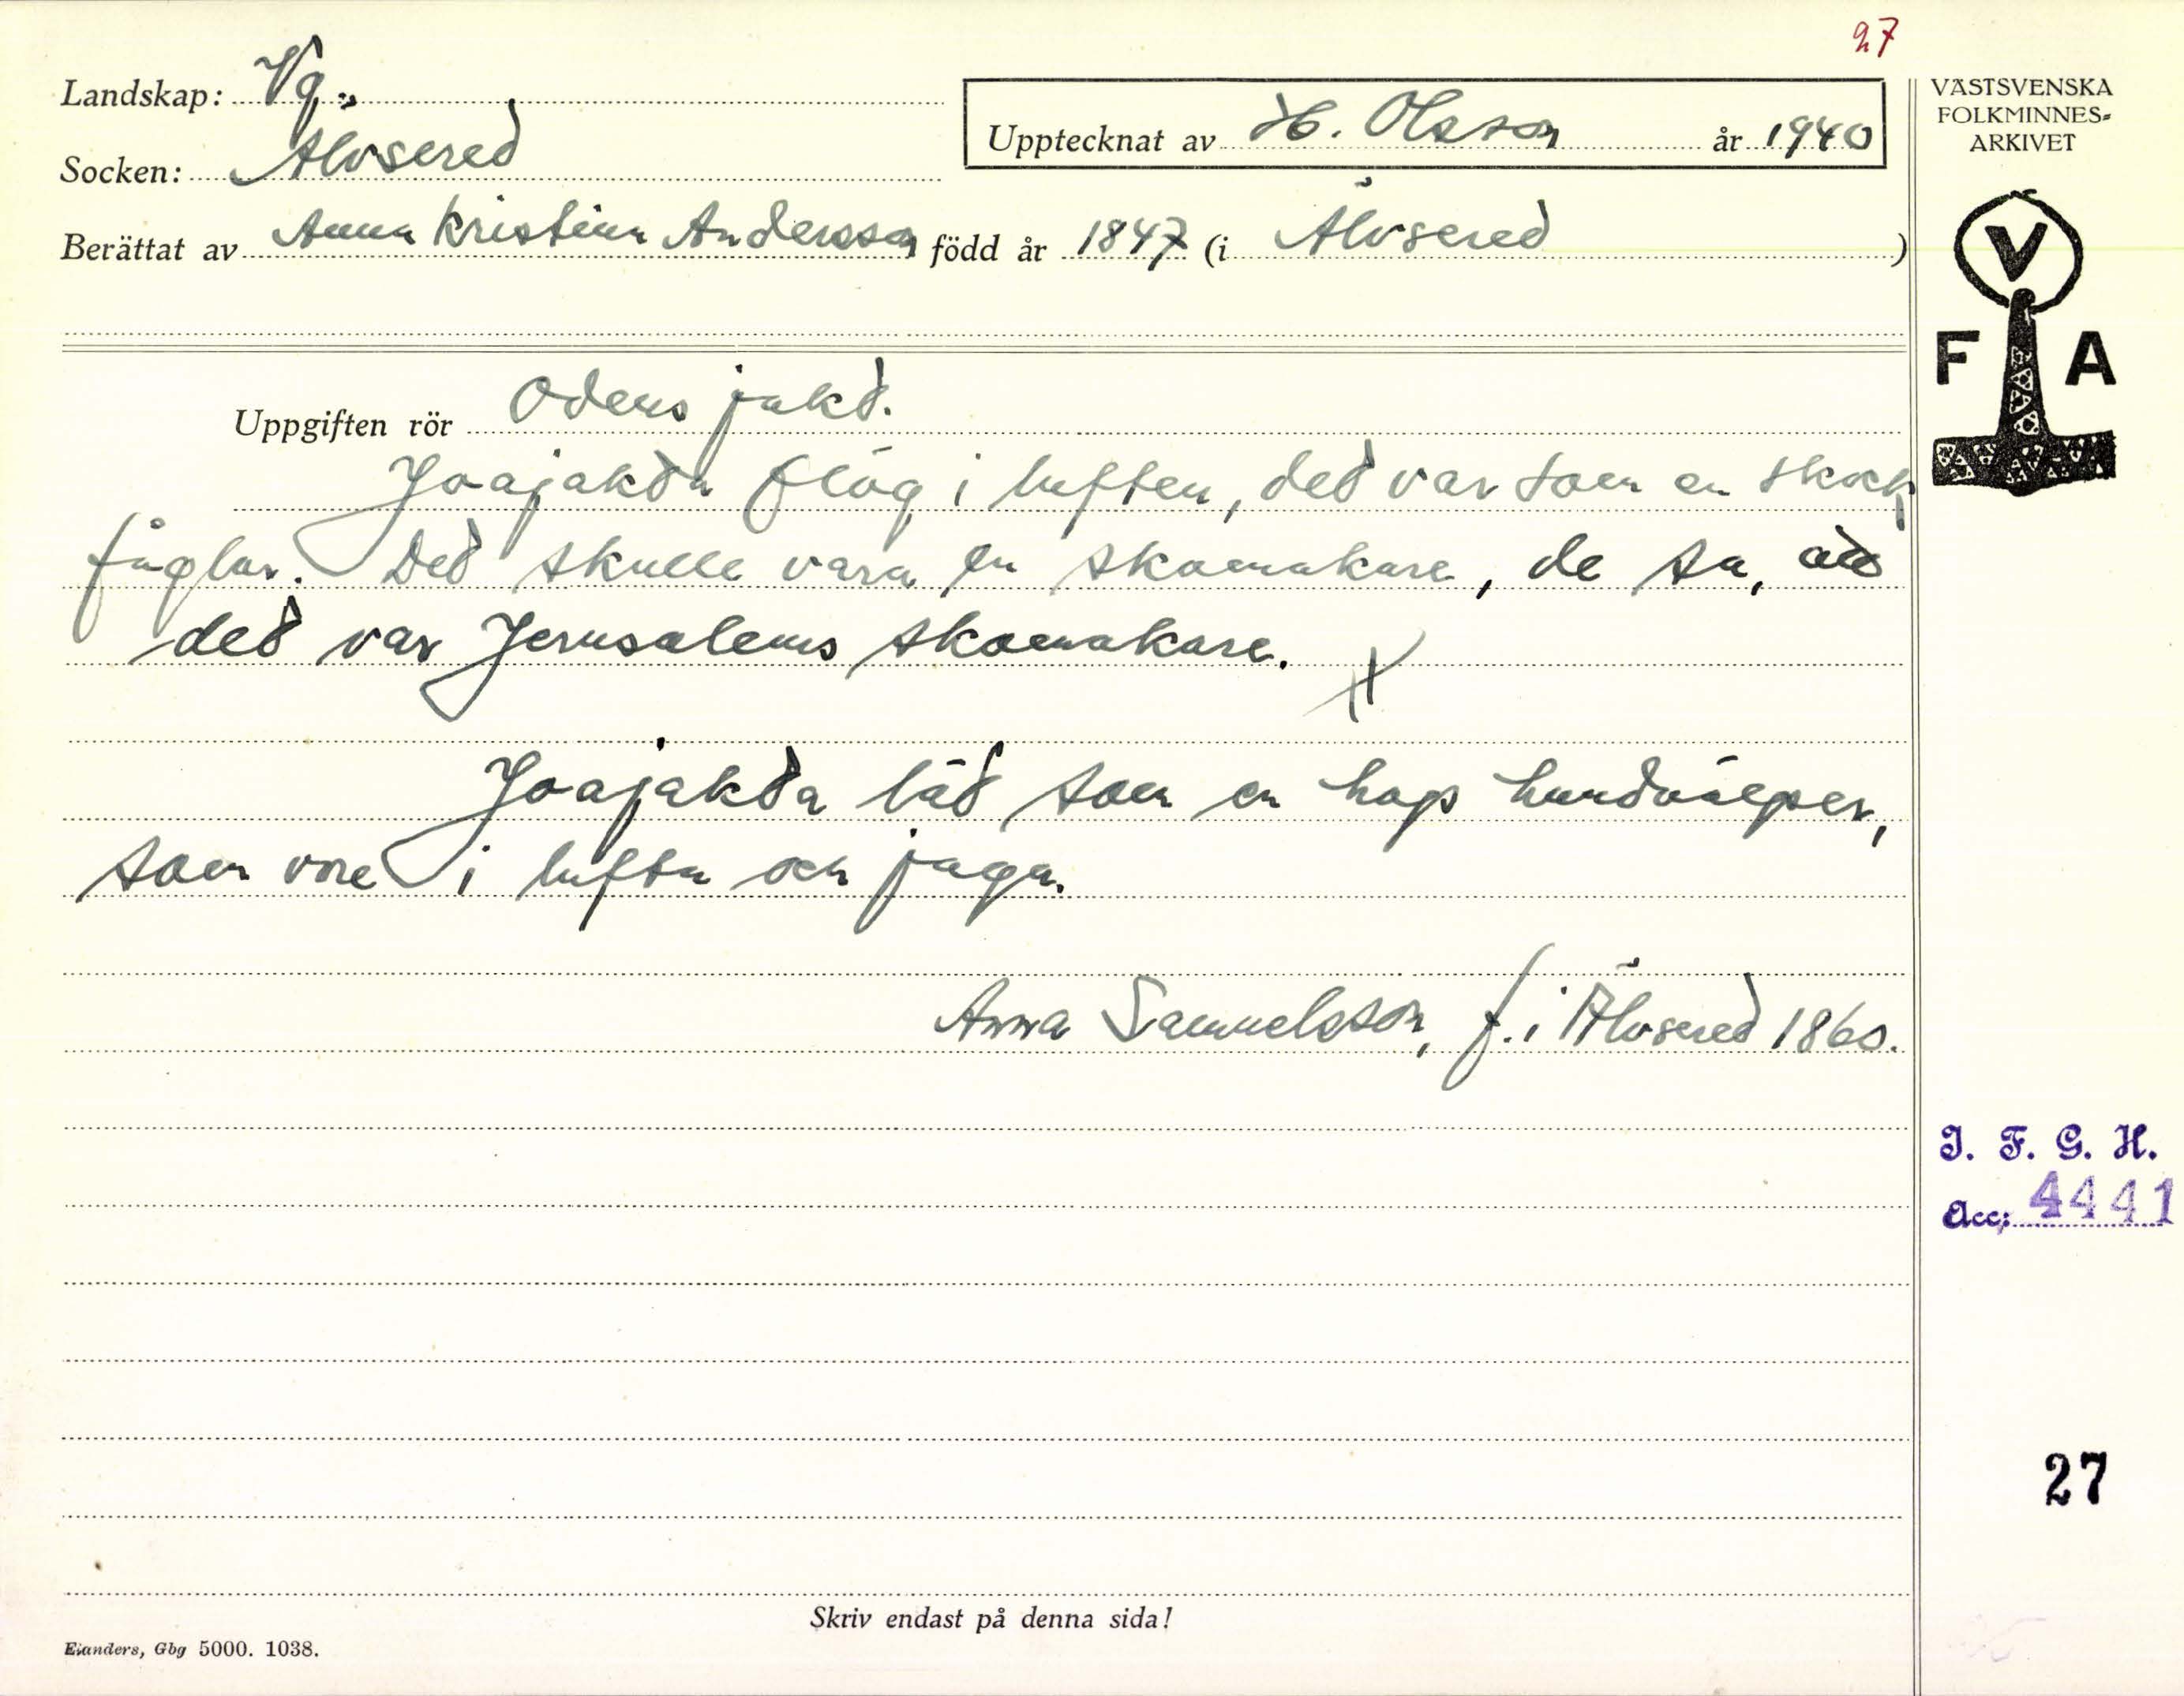 27
Landskap: Vg.
Socken: Älvsered
Upptecknat av H. Olsson år 1940
Berättat av Anna Kristina Andersson född år 1847 (i Älvsered)
Uppgiften rör Odens jakt.
Joajakta flög i luften, det var som en skock
fåglar. Det skulle vara en skomakare, de sa, att
det var Jerusalems skomakare.
Joajakta lät som en hop hundvalper,
som vore i lufta och jaga.
Anna Samuelsson, f. i Älvsered 1860.
Skriv endast på denna sida!
Elanders, Gbg 5000. 1038.
VÄSTSVENSKA
FOLKMINNES-
ARKIVET
V
F A
I. F. G. H.
Acc: 4441
27